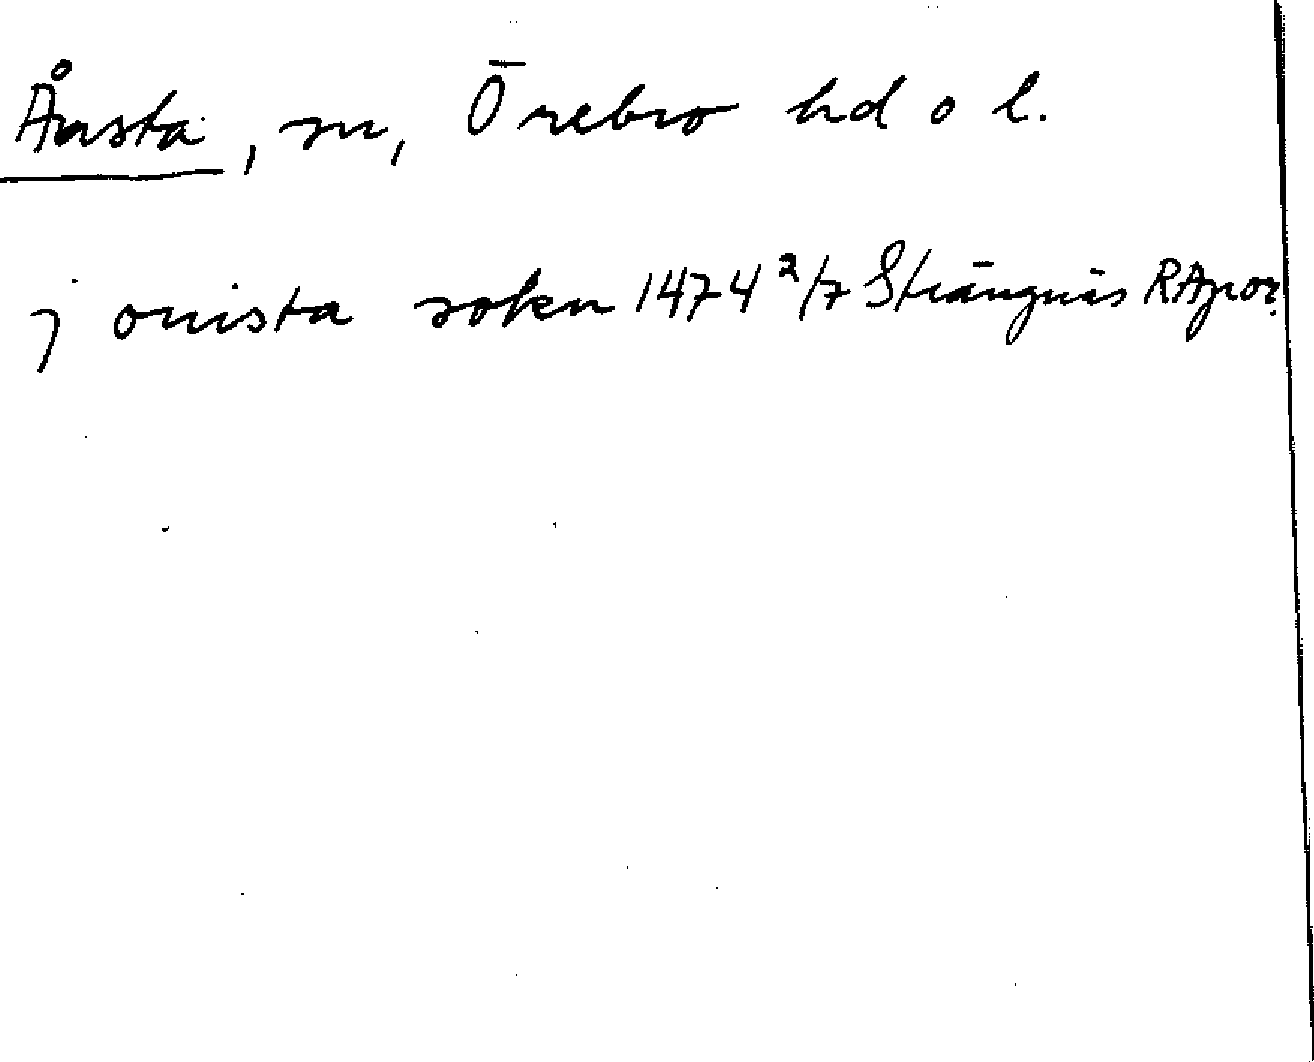 Ånsta, sn, Örebro hd o l.
j onista soken 1474 2/7 Strängnäs RAp or.